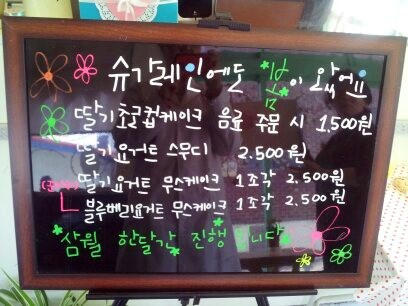 슈가레인에도 봄이 왔어요
딸기초코컵케이크 음료 주문 시 1,500원
딸기요거트 스무디 2.500원
딸기요거트 무스케이크 1조각 2.500원
블루베리요거트 무스케이크 1조각 2.500원
삼월 한달간 진행 됩니다